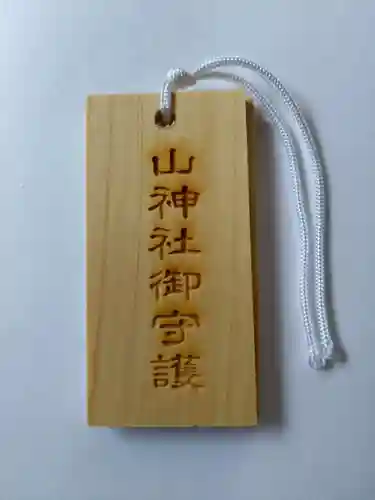 山神社御守護